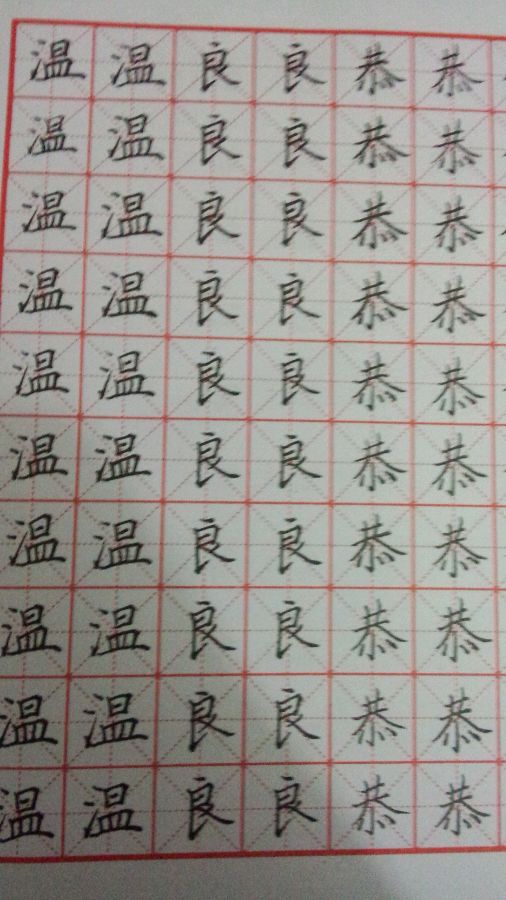 温温良良恭恭
温温良良恭恭
温温良良恭恭
温温良良恭恭
温温良良恭恭
温温良良恭恭
温温良良恭恭
温温良良恭恭
温温良良恭恭
温温良良恭恭